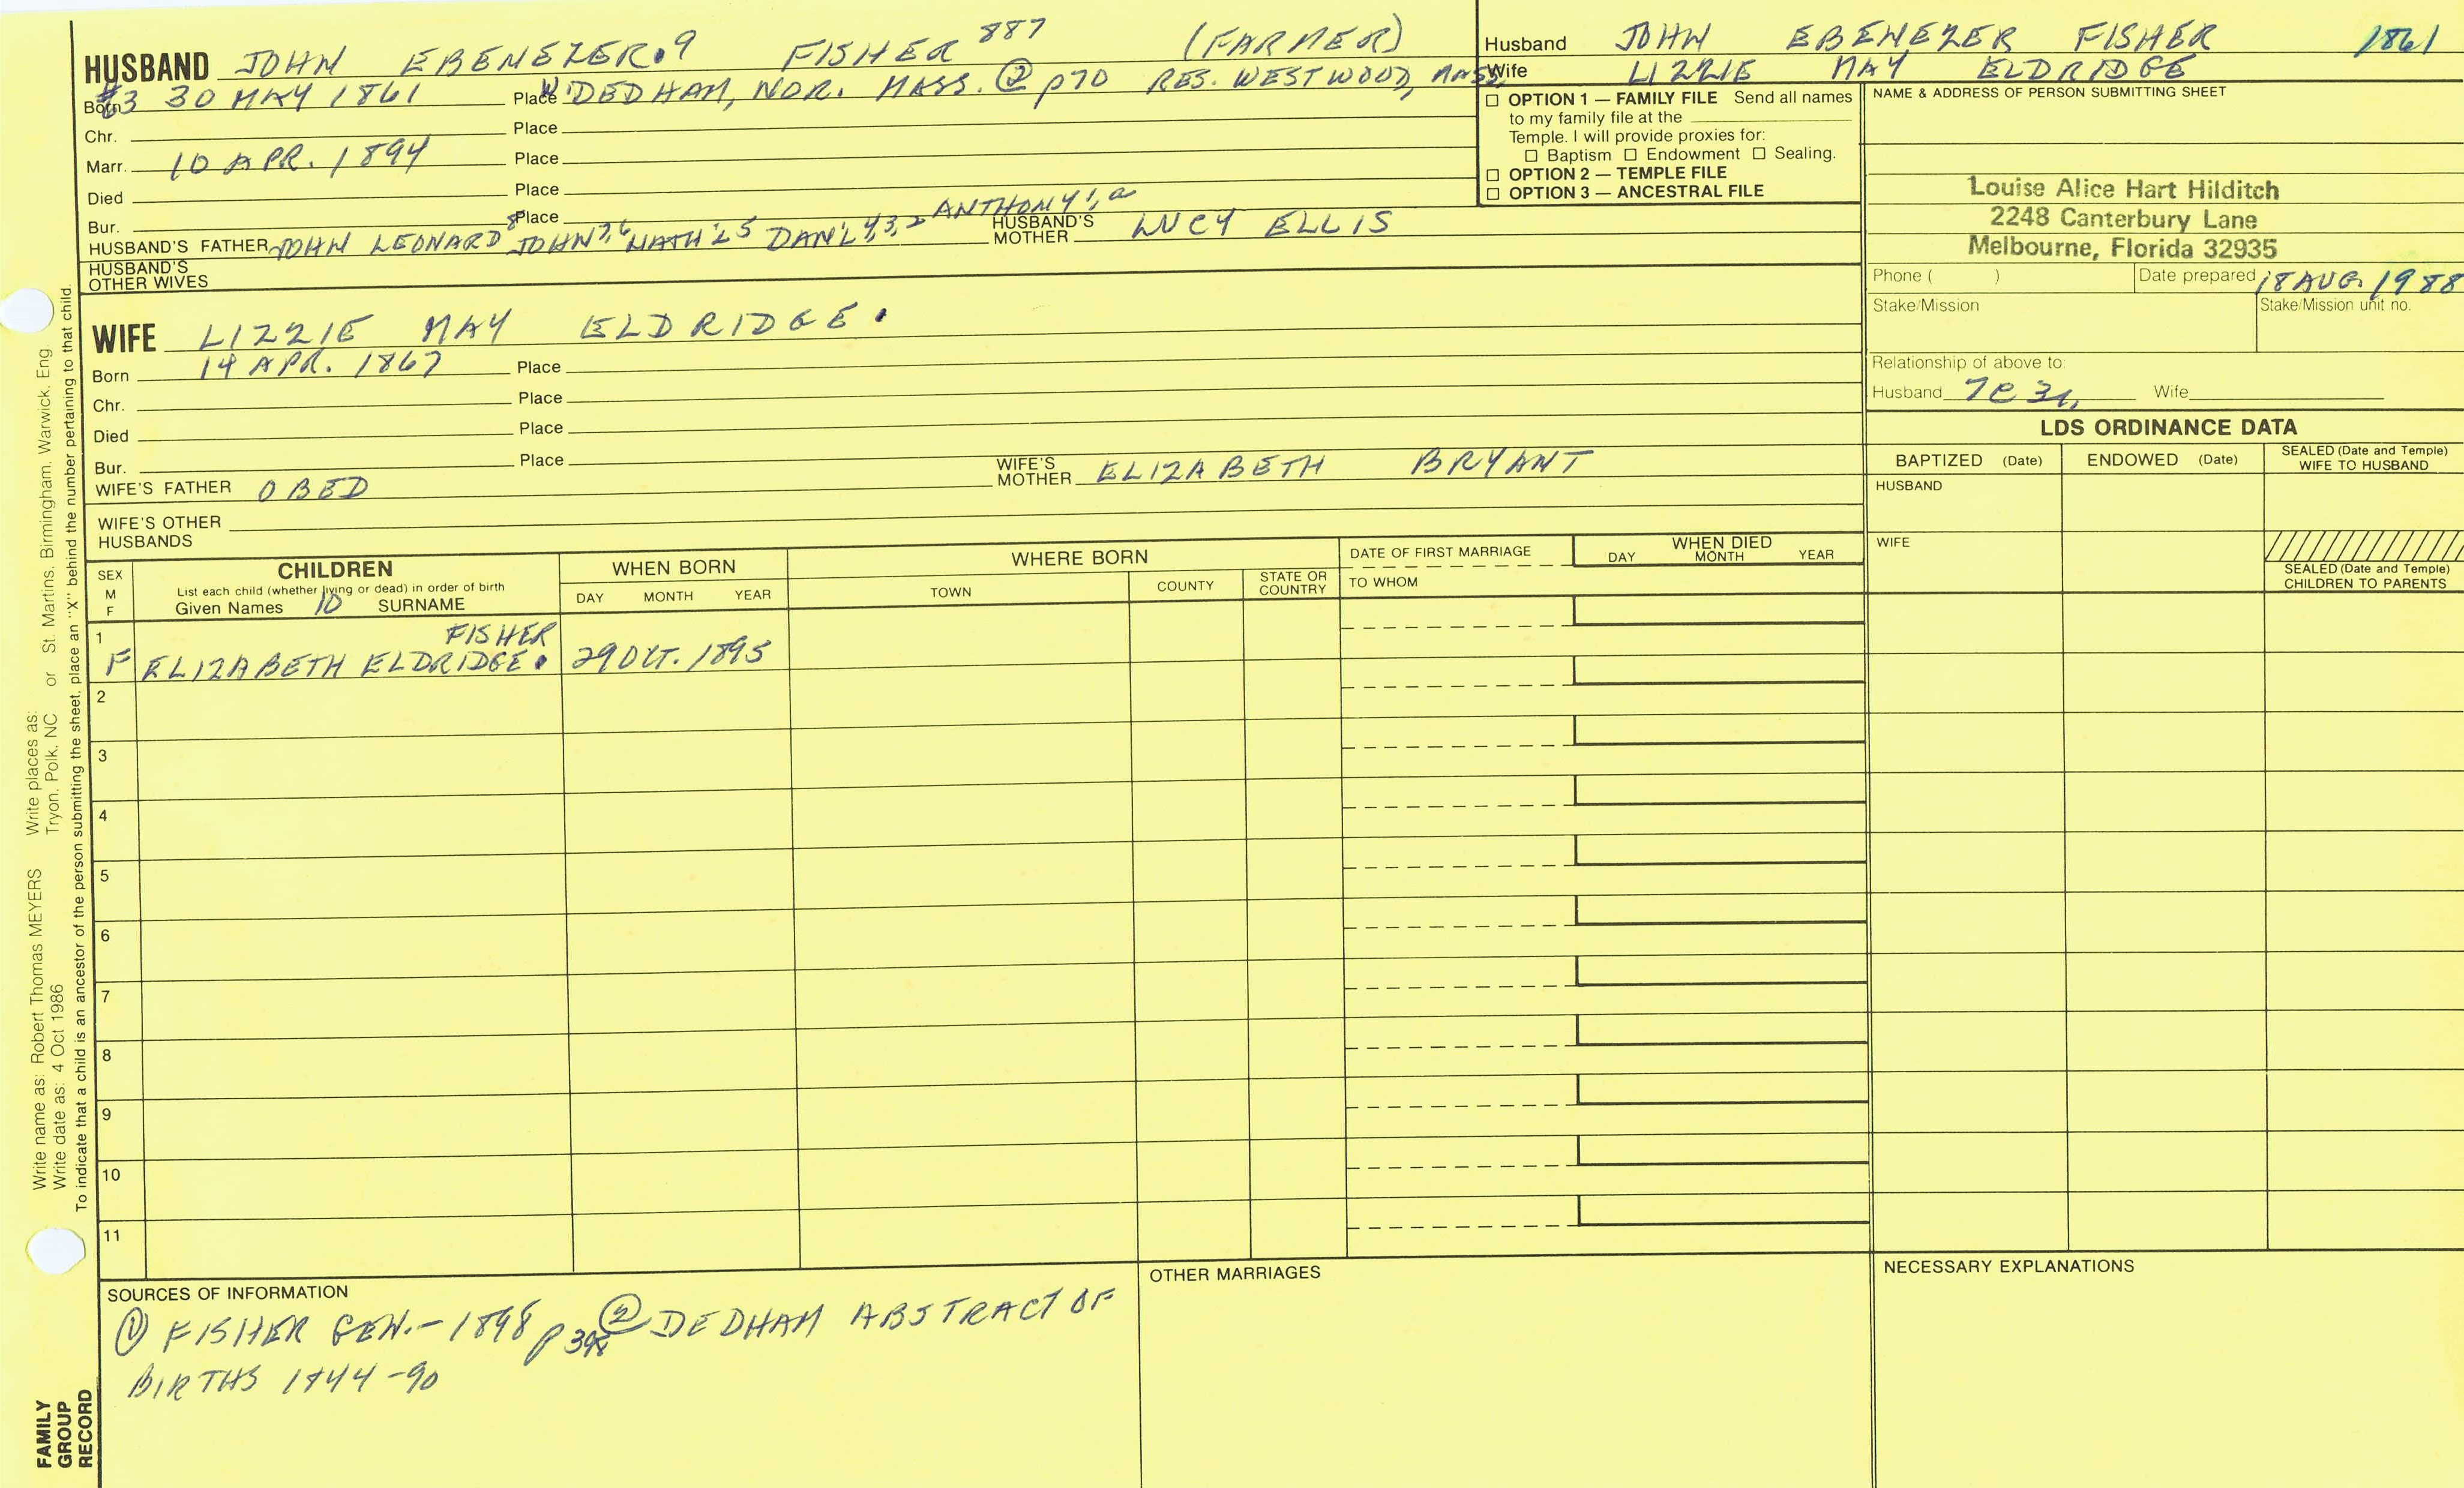 HUSBAND JOHN EBENEZER.9 FISHER 887 (FARMER)
Born #3 30 MAY 1861 Place W. DEDHAM, NOR. MASS. ② p70 RES. WESTWOOD, MASS.
Chr. Place
Marr. 10 APR. 1894 Place
Died Place
Bur. Place
HUSBAND'S FATHER JOHN LEONARD 8 JOHN 7,6 NATH'L 5 DAN'L 4,3,2 ANTHONY 1,a HUSBAND'S MOTHER LUCY ELLIS
HUSBAND'S OTHER WIVES
WIFE LIZZIE MAY ELDRIDGE.
Born 14 APR. 1867 Place
Chr. Place
Died Place
Bur. Place
WIFE'S FATHER OBED WIFE'S MOTHER ELIZABETH BRYANT
WIFE'S OTHER HUSBANDS
Husband JOHN EBENEZER FISHER 1861
Wife LIZZIE MAY ELDRIDGE
☐ OPTION 1 — FAMILY FILE Send all names
to my family file at the
Temple. I will provide proxies for:
☐ Baptism ☐ Endowment ☐ Sealing.
☐ OPTION 2 — TEMPLE FILE
☐ OPTION 3 — ANCESTRAL FILE
NAME & ADDRESS OF PERSON SUBMITTING SHEET
Louise Alice Hart Hilditch
2248 Canterbury Lane
Melbourne, Florida 32935
Phone ( ) Date prepared 18 AUG. 1988
Stake/Mission Stake/Mission unit no.
Relationship of above to:
Husband 7C 3r, Wife
LDS ORDINANCE DATA
BAPTIZED (Date) ENDOWED (Date) SEALED (Date and Temple) WIFE TO HUSBAND
HUSBAND
WIFE
SEALED (Date and Temple) CHILDREN TO PARENTS
SEX M F
CHILDREN
List each child (whether living or dead) in order of birth
Given Names 10 SURNAME
WHEN BORN
DAY MONTH YEAR
WHERE BORN
TOWN COUNTY STATE OR COUNTRY
DATE OF FIRST MARRIAGE
TO WHOM
WHEN DIED
DAY MONTH YEAR
1 FISHER
F ELIZABETH ELDRIDGE. 29 OCT. 1895
2
3
4
5
6
7
8
9
10
11
SOURCES OF INFORMATION
① FISHER GEN.-1898 p398 ② DEDHAM ABSTRACT OF
BIRTHS 1844-90
OTHER MARRIAGES
NECESSARY EXPLANATIONS
Write name as: Robert Thomas MEYERS Write places as: St. Martins, Birmingham, Warwick, Eng
Write date as: 4 Oct 1986 Tryon, Polk, NC or
To indicate that a child is an ancestor of the person submitting the sheet, place an "X" behind the number pertaining to that child.
FAMILY GROUP RECORD